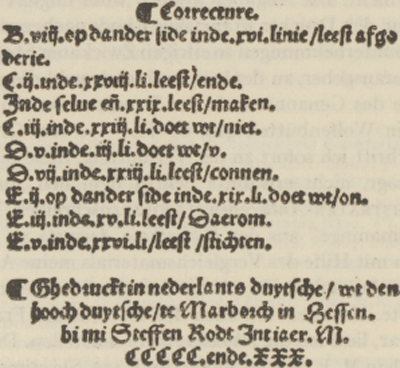 ¶ Correcture.
B.viij.op dander side inde.xvi.linie/leest afgo
derie.
C.ij.inde.xxviij.li.leest/ende.
Inde selue eñ.xxix.leest/maken.
C.iij.inde.xxiij.li.doet wt/niet.
D.v.inde.iij.li.doet wt/v.
D.vij.inde.xxiij.li.leest/connen.
E.ij.op dander side inde.xix.li.doet wt/on.
E.iij.inde.xv.li.leest/Daerom.
E.v.inde.xxvi.li/leest/stichten.
¶ Ghedruckt in nederlants duytsche/wt den
hooch duytsche/te Marborch in Hessen.
bi mi Steffen Rodt Int iaer. M.
CCCCC.ende.XXX.